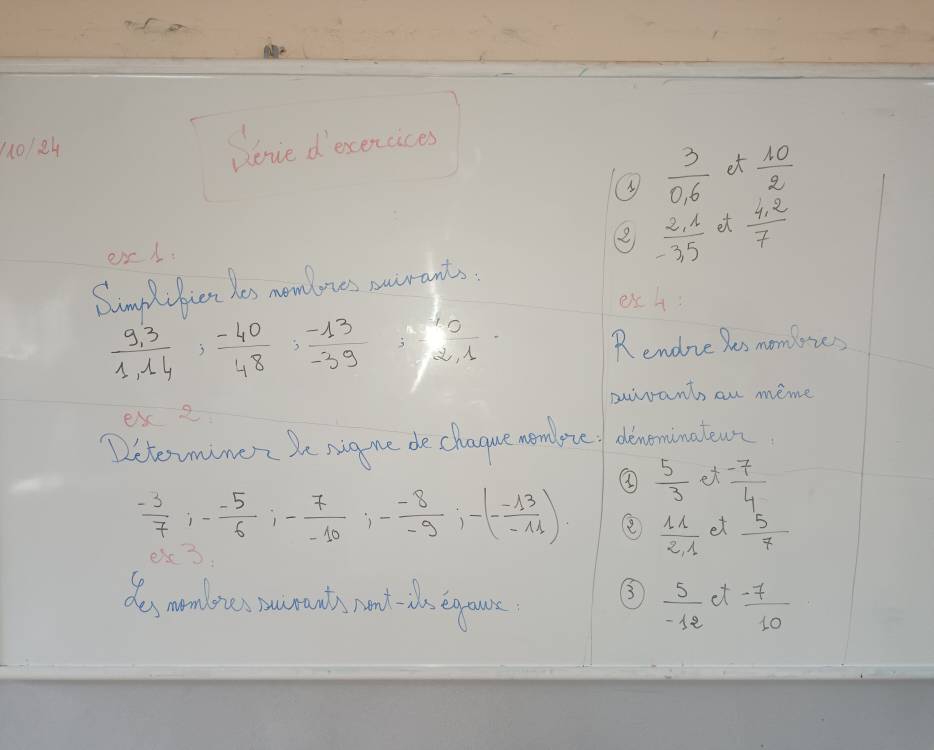 /10/24
Série d'exercices
ex 1 :
Simplifier les nombres suivants :
9,3/1,14 ; -40/48 ; -13/-39 ; 2,1 .
ex 2 :
Déterminer le signe de chaque nombre :
-3/7 ; - -5/6 ; - 7/-10 ; - -8/-9 ; -(- -13/-11) .
ex 3 :
Les nombres suivants sont-ils égaux :
① 3/0,6 et 10/2
② 2,1/-3,5 et 4,2/7
ex 4 :
Rendre les nombres
suivants au même
dénominateur :
① 5/3 et -7/4
② 11/2,1 et 5/7
③ 5/-12 et -7/10